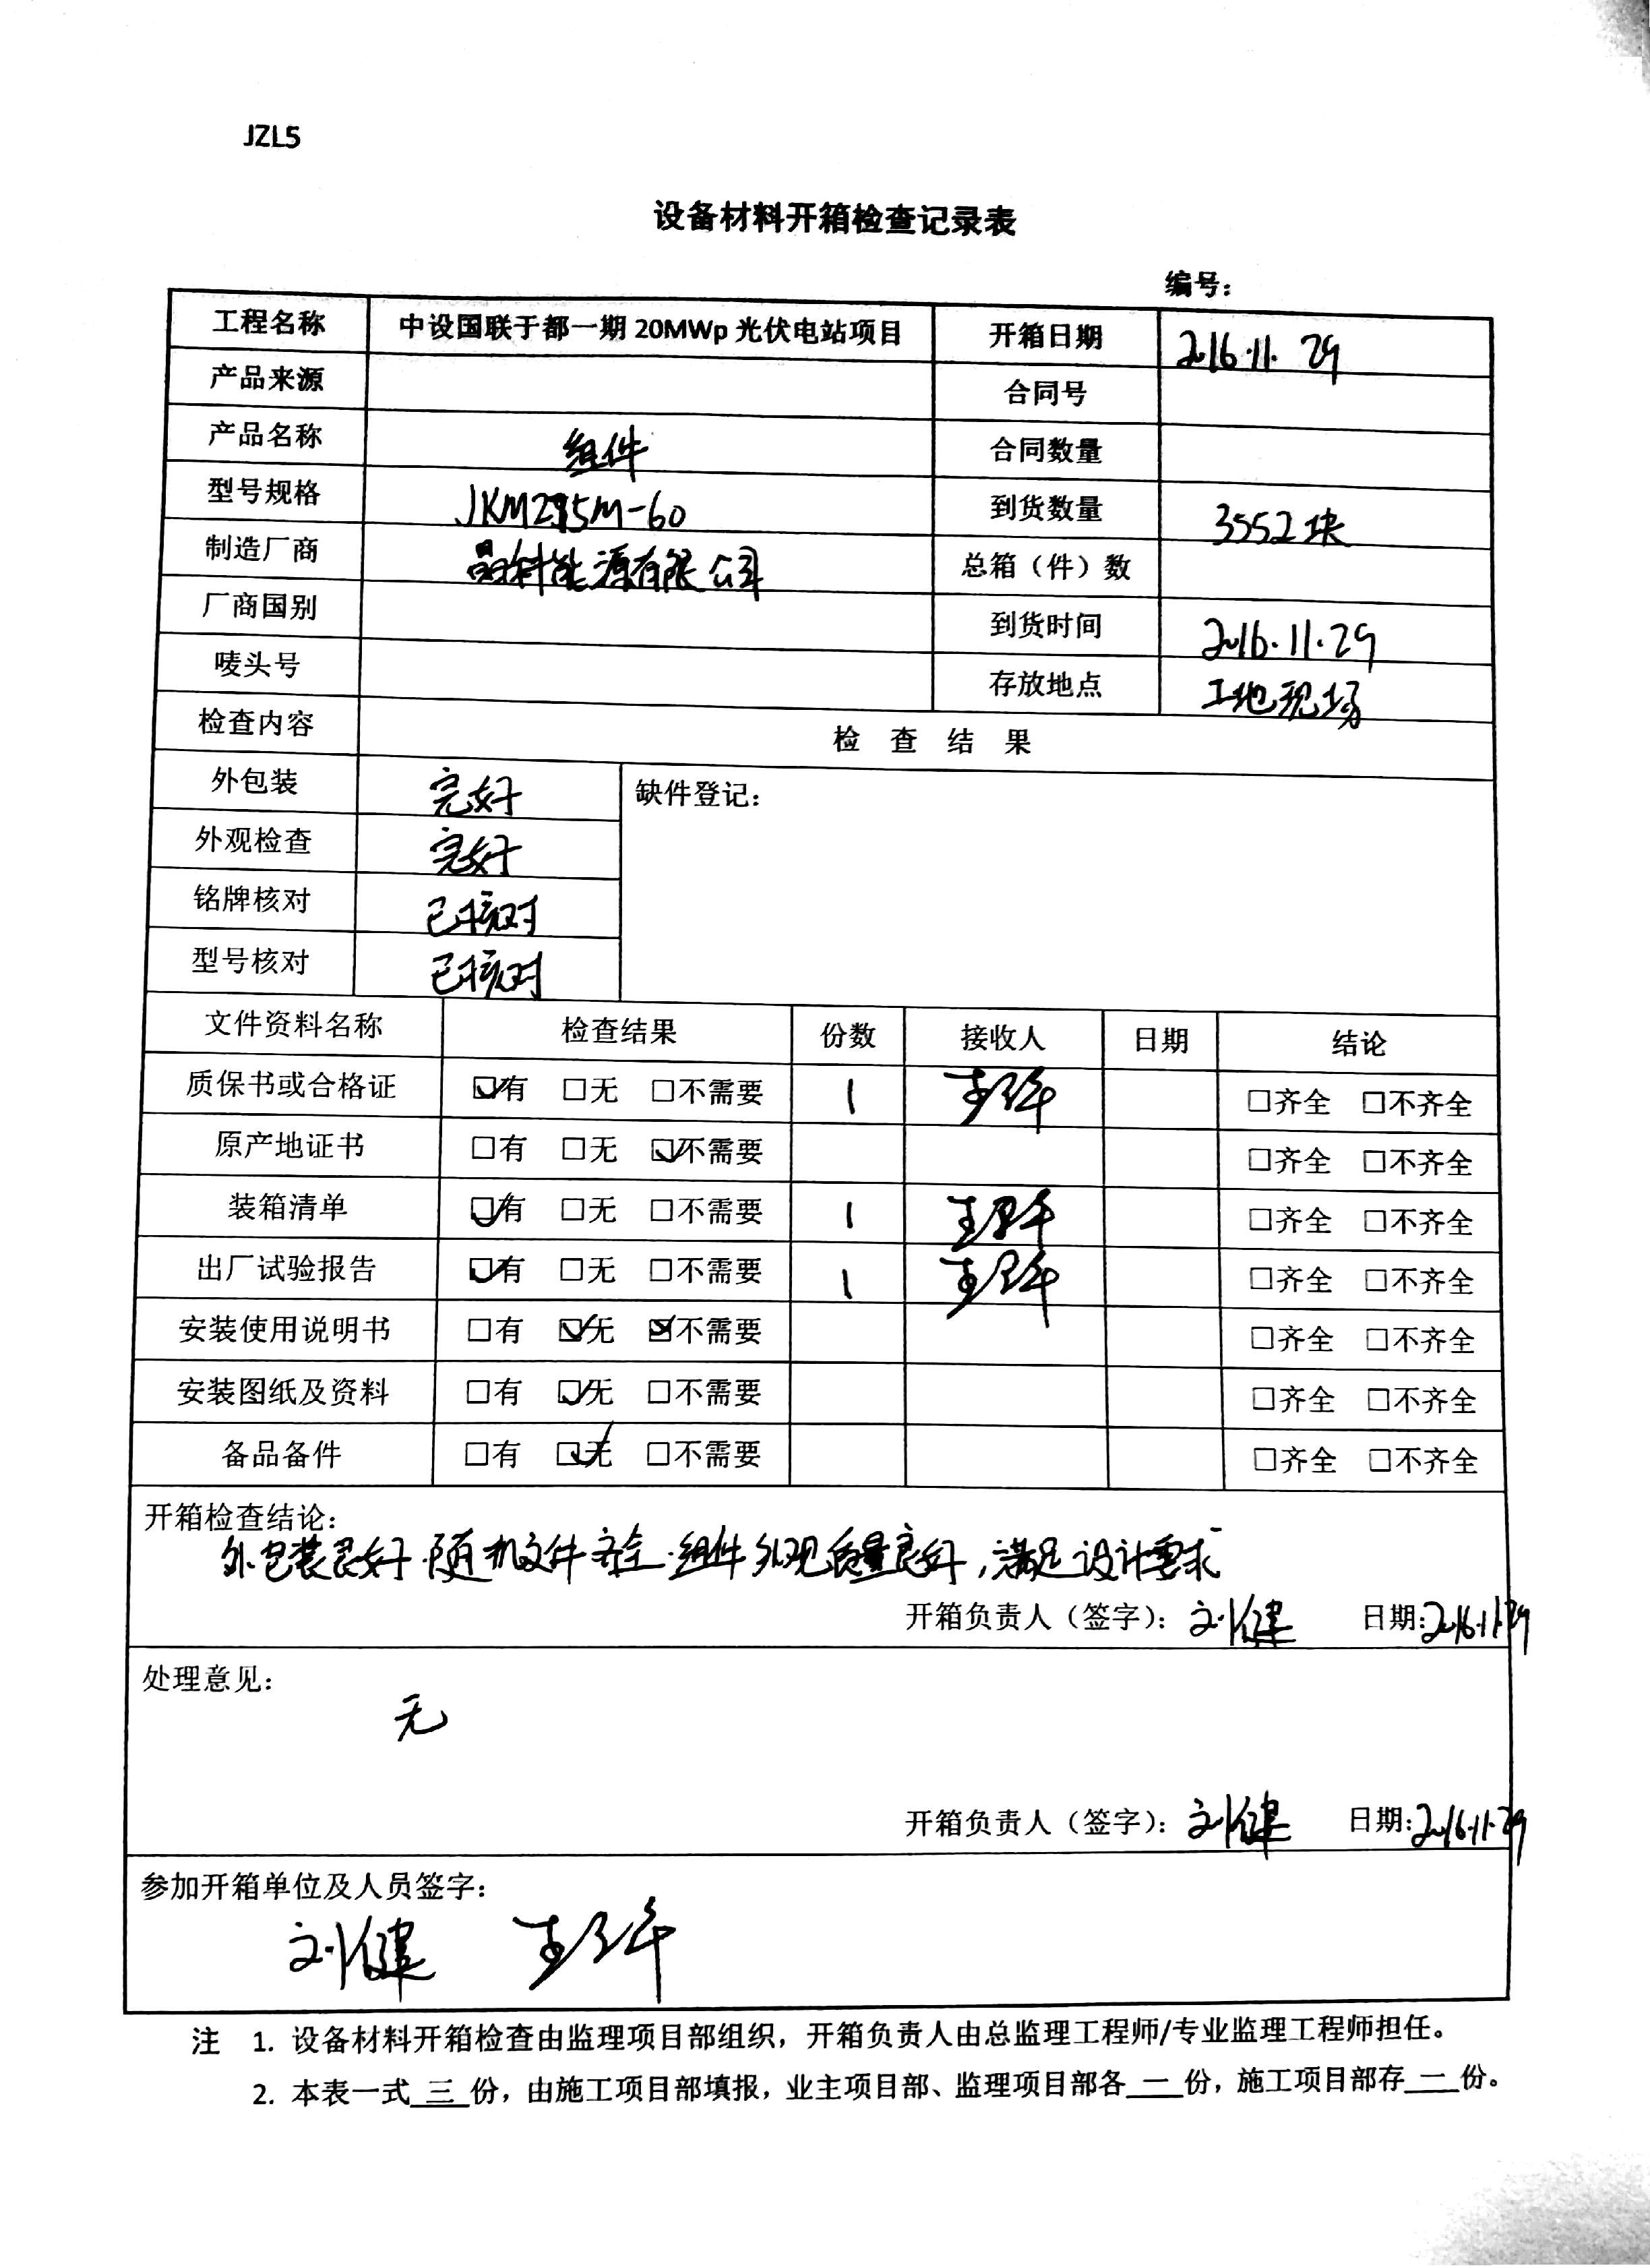 JZL5
设备材料开箱检查记录表
编号：
工程名称 中设国联于都一期 20MWp 光伏电站项目 开箱日期 2016.11.29
产品来源 合同号
产品名称 组件 合同数量
型号规格 JKM295M-60 到货数量 3552块
制造厂商 晶科能源有限公司 总箱（件）数
厂商国别 到货时间 2016.11.29
唛头号 存放地点 工地现场
检查内容 检 查 结 果
外包装 完好 缺件登记：
外观检查 完好
铭牌核对 已核对
型号核对 已核对
文件资料名称 检查结果 份数 接收人 日期 结论
质保书或合格证 ☑有 □无 □不需要 1 □齐全 □不齐全
原产地证书 □有 □无 ☑不需要 □齐全 □不齐全
装箱清单 ☑有 □无 □不需要 1 □齐全 □不齐全
出厂试验报告 ☑有 □无 □不需要 1 □齐全 □不齐全
安装使用说明书 □有 ☑无 ☒不需要 □齐全 □不齐全
安装图纸及资料 □有 ☑无 □不需要 □齐全 □不齐全
备品备件 □有 ☑无 □不需要 □齐全 □不齐全
开箱检查结论：
外包装良好.随机文件齐全.组件外观质量良好,满足设计要求
开箱负责人（签字）：刘健 日期：2016.11.29
处理意见：
无
开箱负责人（签字）：刘健 日期：2016.11.29
参加开箱单位及人员签字：
刘健
注 1. 设备材料开箱检查由监理项目部组织，开箱负责人由总监理工程师/专业监理工程师担任。
2. 本表一式 三 份，由施工项目部填报，业主项目部、监理项目部各 一 份，施工项目部存 一 份。